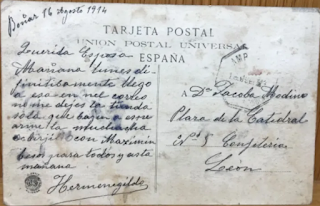 Boñar 16 Agosto 1914
TARJETA POSTAL
UNION POSTAL UNIVERSAL
ESPAÑA
Querida Esposa
Mañana lunes di-
finitibamente llego
a esa en nel correo
no me dejes la tienda
sola que bajen a esperar
la muchacha
con Maximin
besos para todos y asta
mañana
Hermenegildo
Dª Jacoba Medino
Plaza de la Catedral
Nº 5 Confitería
León
AMB